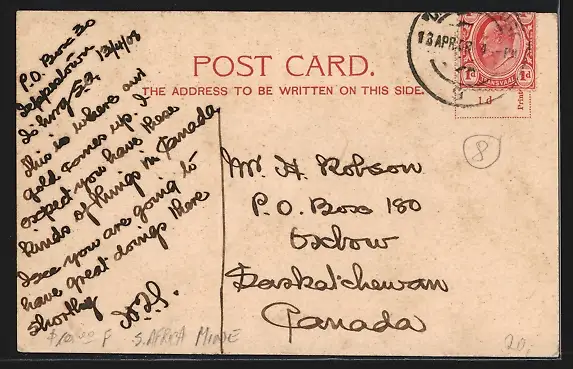 POST CARD.
THE ADDRESS TO BE WRITTEN ON THIS SIDE.
P.O. Box 30
Jeppestown
Jo'burg S.A. 13/4/08
This is where our
gold comes up. I
expect you have these
kinds of things in Canada
I see you are going to
have great doings there
shortly
Mr H. Robson
P.O. Box 180
Oxbow
Saskatchewan
Canada
13 APR 08
1d TRANSVAAL 1d
½d
8
$10.00 F S. AFRICA MINE
20.